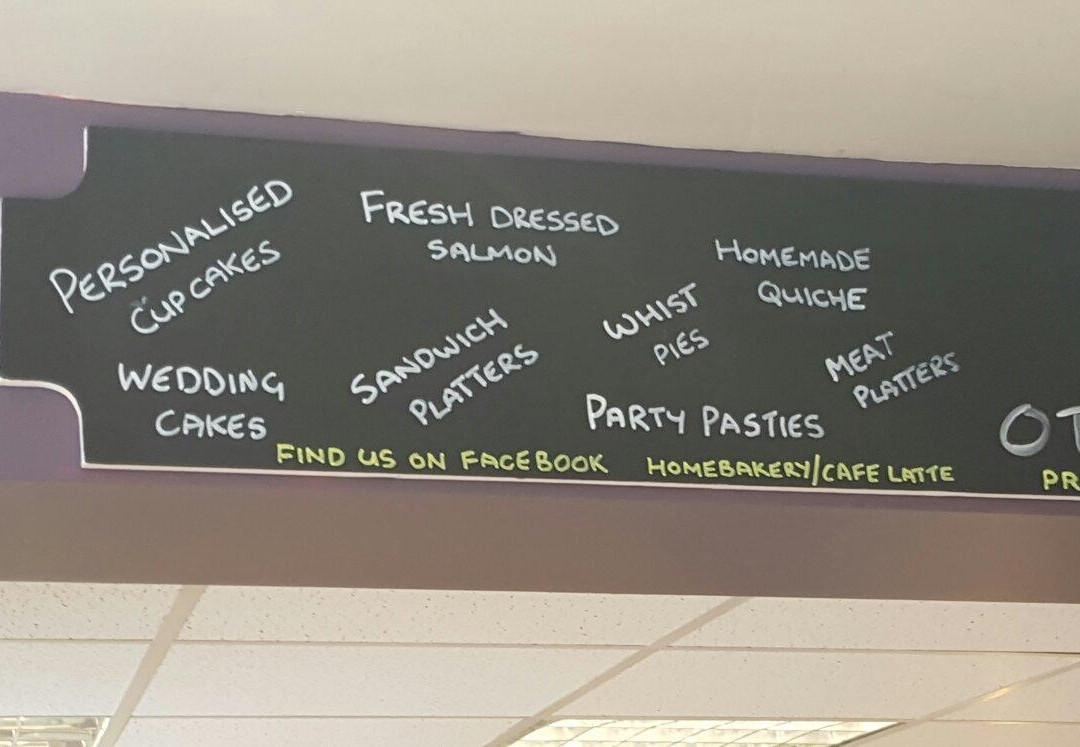 PERSONALISED
CUPCAKES
FRESH DRESSED
SALMON
HOMEMADE
QUICHE
WHIST
PIES
WEDDING
CAKES
SANDWICH
PLATTERS
MEAT
PLATTERS
PARTY PASTIES
FIND US ON FACEBOOK HOMEBAKERY/CAFE LATTE